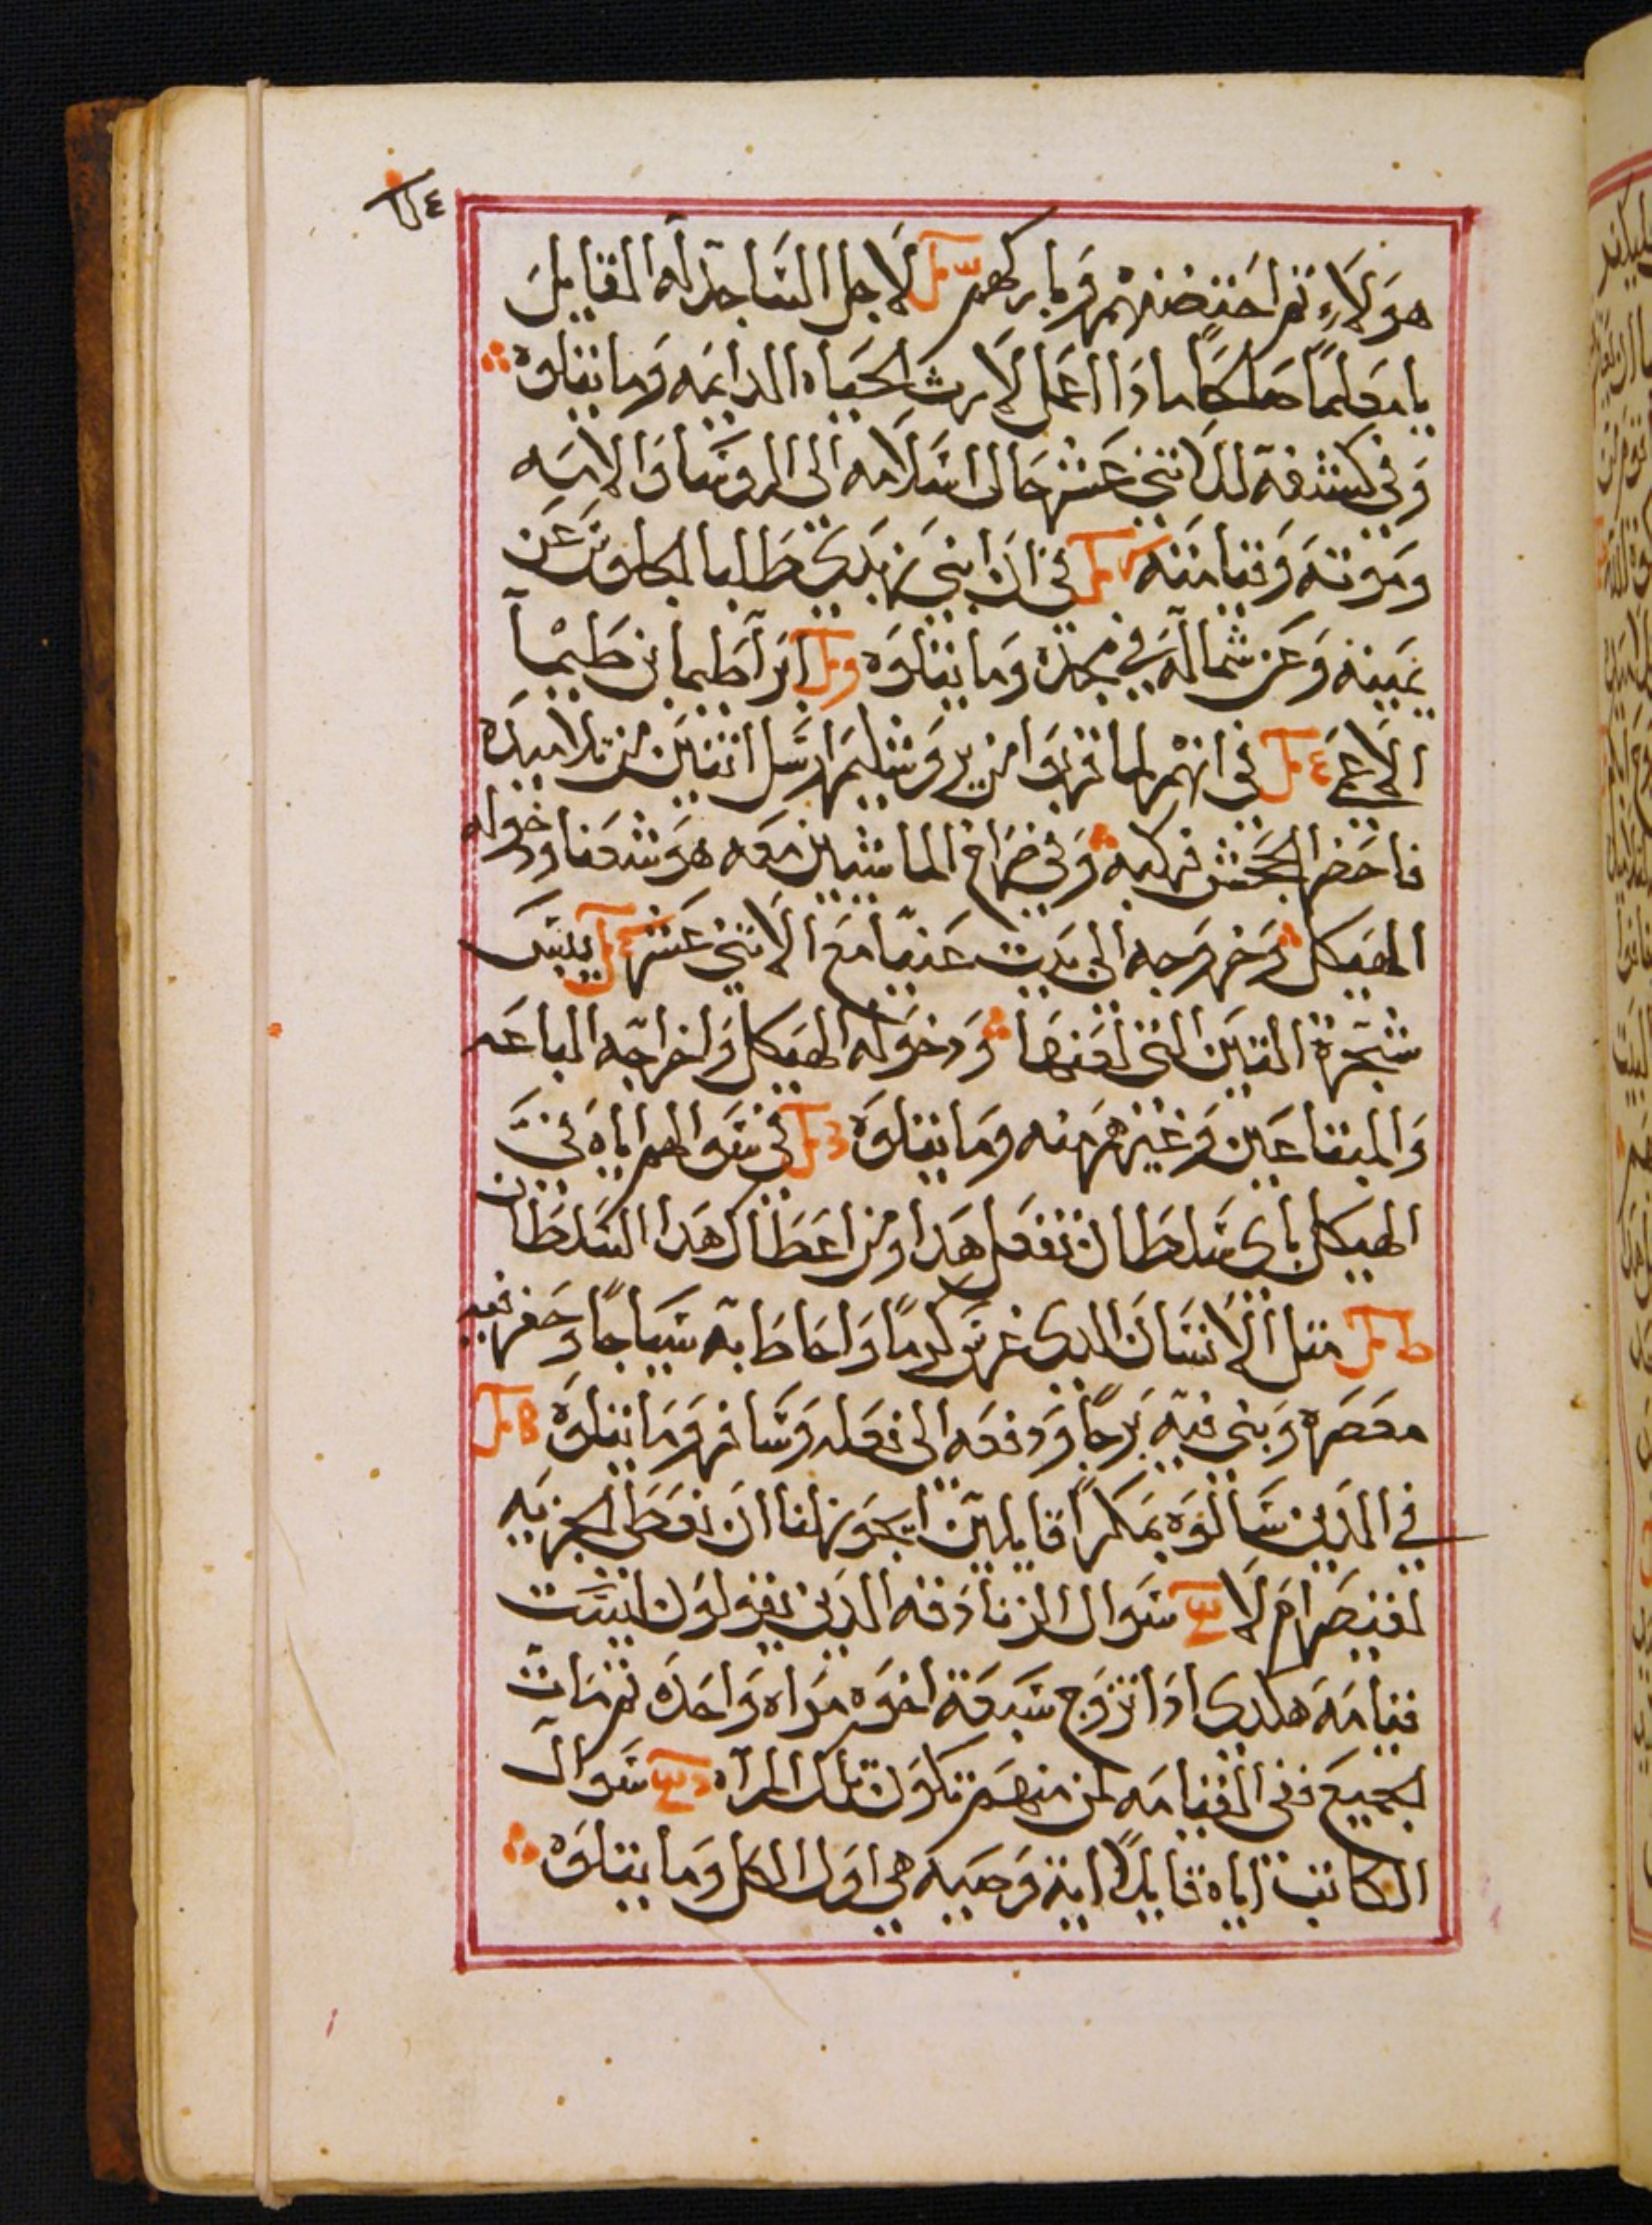 هولاء ثم احتضنهم وباركهم لاجل الساجد له القايل
يا معلمًا صالحًا ماذا اعمل لارث الحياه الدايمه وما يتلوه
وفي كشفه للاثني عشر حال اسلامه الى الروسا والامه
وموته وقيامته في ان ابني زبدي طلبا الجلوس عن
يمينه وعن شماله في مجده وما يتلوه ابن اطيما بن طيما
الاعمى في انهم لما قربوا من يروشليم ارسل اثنين من تلاميذه
فاحضرا الجحش فركبه وفي صراخ الماشيين معه هوشعنا ودخوله
الهيكل وخروجه الى بيت عنيا مع الاثني عشر يبس
شجرة التين التي لعنها ودخوله الهيكل واخراجه الباعه
والمبتاعين وغيرهم منه وما يتلوه في سوالهم اياه في
الهيكل باي سلطان تفعل هدا ومن اعطاك هدا السلطان
مثل الانسان الدي غرس كرمًا واحاط به سياجًا وحفر فيه
معصره وبنى فيه برجًا ودفعه الى فعله وسافر وما يتلوه
في الدين سالوه بمكرًا قايلين ايجوز لنا ان نعطى الجزيه
لقيصر ام لا سوال الزنادقه الدين يقولون ليست
قيامه هكدي ادا تزوج سبعة اخوه مراه واحده ثم مات
الجميع ففي القيامه لمن منهم تكون تلك المراه سوال
الكاتب اياه قايلاً اية وصيه هي اول الكل وما يتلوه